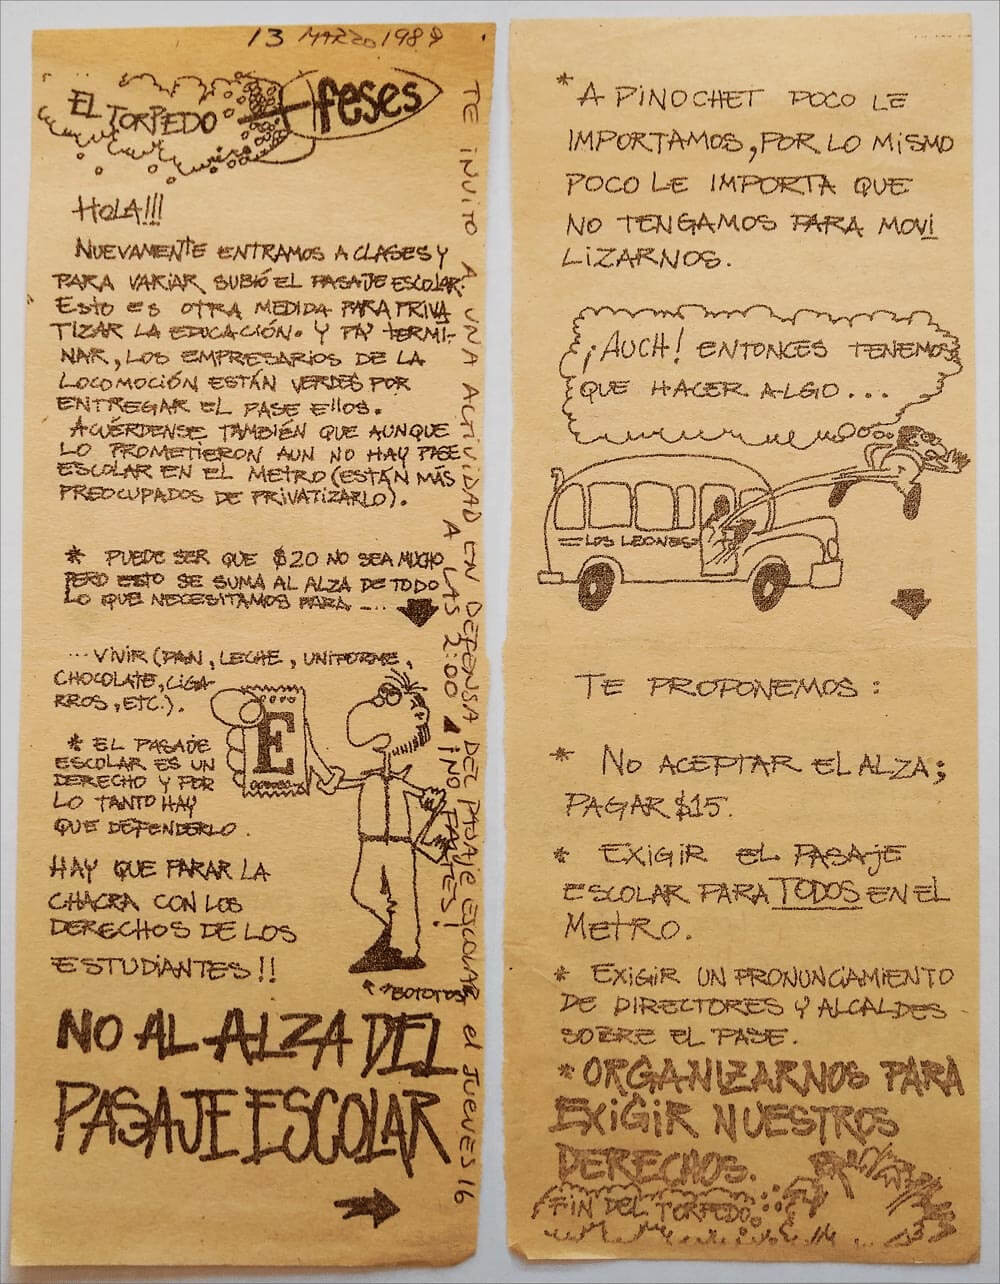 13 MARZO 1989
EL TORPEDO
feses
HOLA!!!
NUEVAMENTE ENTRAMOS A CLASES Y
PARA VARIAR SUBIÓ EL PASAJE ESCOLAR.
ESTO ES OTRA MEDIDA PARA PRIVA
TIZAR LA EDUCACIÓN. Y PA' TERMI-
NAR, LOS EMPRESARIOS DE LA
LOCOMOCIÓN ESTÁN VERDES POR
ENTREGAR EL PASE EllOS.
ACUÉRDENSE TAMBIÉN QUE AUNQUE
LO PROMETIERON AUN NO HAY PASE
ESCOLAR EN EL METRO (ESTÁN MÁS
PREOCUPADOS DE PRIVATIZARLO).
* PUEDE SER QUE $20 NO SEA MUCHO
PERO ESTO SE SUMA AL ALZA DE TODO
LO QUE NECESITAMOS PARA ....
...VIVIR (PAN, LECHE, UNIFORME,
CHOCOLATE, CIGA-
RROS, ETC.).
E
* EL PASAJE
ESCOLAR ES UN
DERECHO Y POR
LO TANTO HAY
QUE DEFENDERLO.
HAY QUE PARAR LA
CHACRA CON LOS
DERECHOS DE LOS
ESTUDIANTES!!
"BOTOTOS"
NO AL ALZA DEL
PASAJE ESCOLAR
TE INVITO A UNA ACTIVIDAD EN DEFENSA DEL PASAJE ESCOLAR el JUEVES 16
A LAS 2:00 ¡NO FALTES!
* A PINOCHET POCO LE
IMPORTAMOS, POR LO MISMO
POCO LE IMPORTA QUE
NO TENGAMOS PARA MOVI
LIZARNOS.
¡AUCH! ENTONCES TENEMOS
QUE HACER ALGO...
LOS LEONES
TE PROPONEMOS:
* NO ACEPTAR EL ALZA;
PAGAR $15.
* EXIGIR EL PASAJE
ESCOLAR PARA TODOS EN EL
METRO.
* EXIGIR UN PRONUNCIAMIENTO
DE DIRECTORES Y ALCALDES
SOBRE EL PASE.
* ORGANIZARNOS PARA
EXIGIR NUESTROS
DERECHOS.
FIN DEL TORPEDO